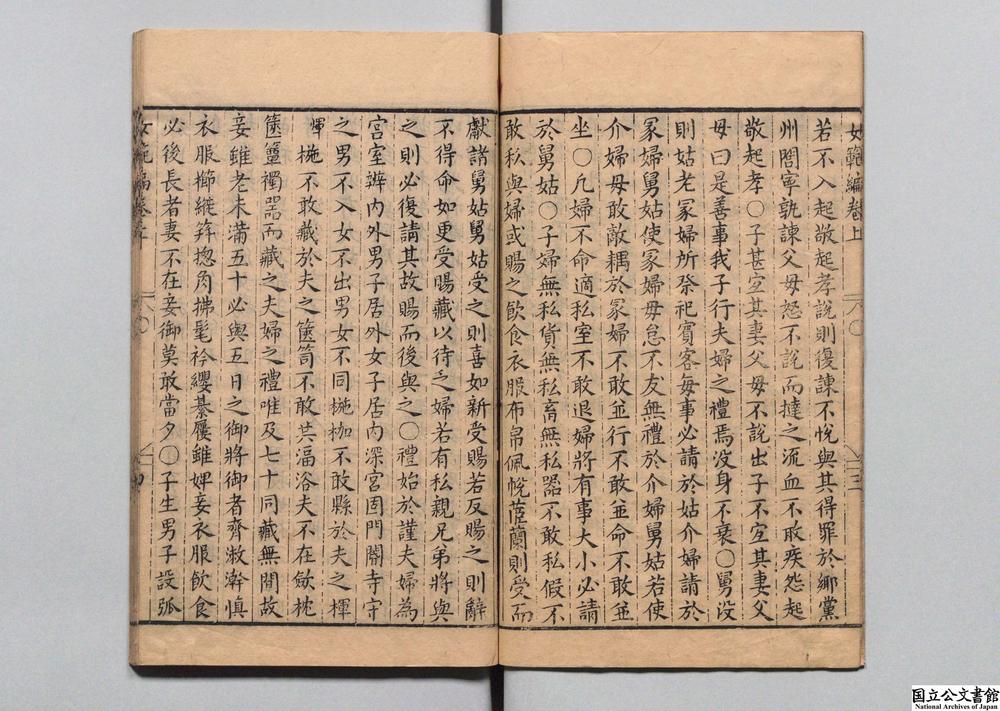 女範編卷上
三
若不入起敬起孝說則復諫不悅與其得罪於鄉黨
州閭寧孰諫父母怒不說而撻之流血不敢疾怨起
敬起孝○子甚宜其妻父母不說出子不宜其妻父
母曰是善事我子行夫婦之禮焉没身不衰○舅没
則姑老冢婦所祭祀賓客每事必請於姑介婦請於
冢婦舅姑使冢婦毋怠不友無禮於介婦舅姑若使
介婦毋敢敵耦於冢婦不敢並行不敢並命不敢並
坐○凡婦不命適私室不敢退婦將有事大小必請
於舅姑○子婦無私貨無私畜無私器不敢私假不
敢私與婦或賜之飲食衣服布帛佩帨茝蘭則受而
獻諸舅姑舅姑受之則喜如新受賜若反賜之則辭
不得命如更受賜藏以待乏婦若有私親兄弟將與
之則必復請其故賜而後與之○禮始於謹夫婦為
宮室辨内外男子居外女子居内深宮固門閽寺守
之男不入女不出男女不同椸枷不敢縣於夫之楎
椸不敢藏於夫之篋笥不敢共湢浴夫不在歛枕
篋簟襡器而藏之夫婦之禮唯及七十同藏無間故
妾雖老未滿五十必與五日之御將御者齊漱澣慎
衣服櫛縰笄揔角拂髦衿纓綦屨雖婢妾衣服飲食
必後長者妻不在妾御莫敢當夕○子生男子設弧
國立公文書館
National Archives of Japan